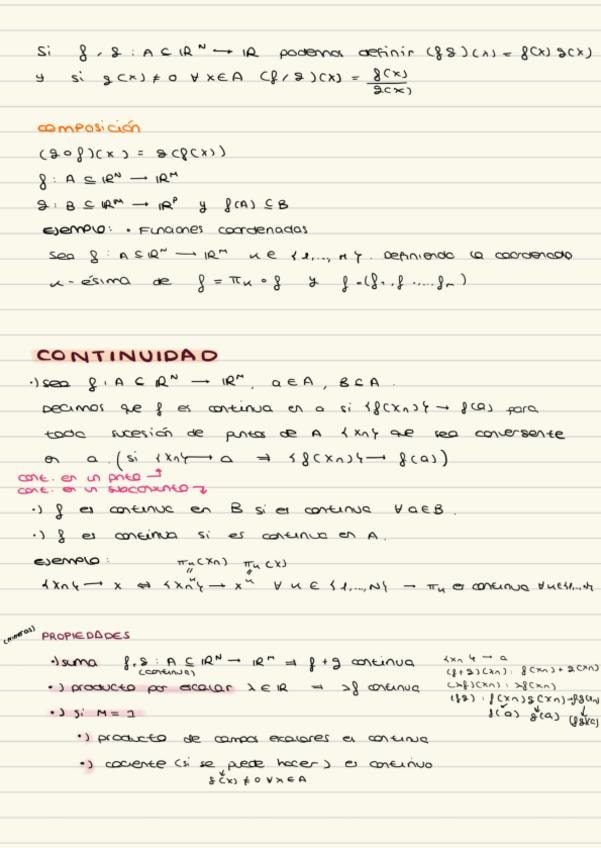 Si f, g : A ⊆ ℝᴺ → ℝ podemos definir (fg)(x) = f(x) g(x)
y si g(x) ≠ 0 ∀ x∈A (f/g)(x) = f(x)/g(x)
composición
(g∘f)(x) = g(f(x))
f : A ⊆ ℝᴺ → ℝᴹ
g : B ⊆ ℝᴹ → ℝᴾ y f(A) ⊆ B
ejemplo: • Funciones coordenadas
sea f : A ⊆ ℝᴺ → ℝᴹ k ∈ {1,..., M}. Definiendo la coordenada
k-ésima de f = πₖ∘f y f = (f₁, f ..... fₘ)
CONTINUIDAD
·) sea f : A ⊆ ℝᴺ → ℝᴹ, a∈A, B⊆A.
Decimos que f es continua en a si {f(xn)} → f(a) para
toda sucesión de puntos de A {xn} que sea convergente
en a. (si {xn} → a ⇒ {f(xn)} → f(a))
cont. en un pnto
cont. en un subconjunto
·) f es continua en B si es continua ∀a∈B.
·) f es continua si es continua en A.
ejemplo: πₖ(xn) πₖ(x)
{xn} → x ⇔ {xnᵏ} → xᵏ ∀ k ∈ {1,...,N} → πₖ es continua ∀k∈{1,...,N}
(mismas) PROPIEDADES
·) suma f, g : A ⊆ ℝᴺ → ℝᴹ ⇒ f + g continua
(continuas)
·) producto por escalar λ∈ℝ ⇒ λf continua
·) si M = 1
·) producto de campos escalares es continua
·) cociente (si se puede hacer) es continuo
g(x) ≠ 0 ∀x∈A
{xn} → a
(f+g)(xn) : f(xn) + g(xn)
(λf)(xn) : λf(xn)
(fg) : f(xn)g(xn) → fg(a)
f(a) g(a) (fg)(a)